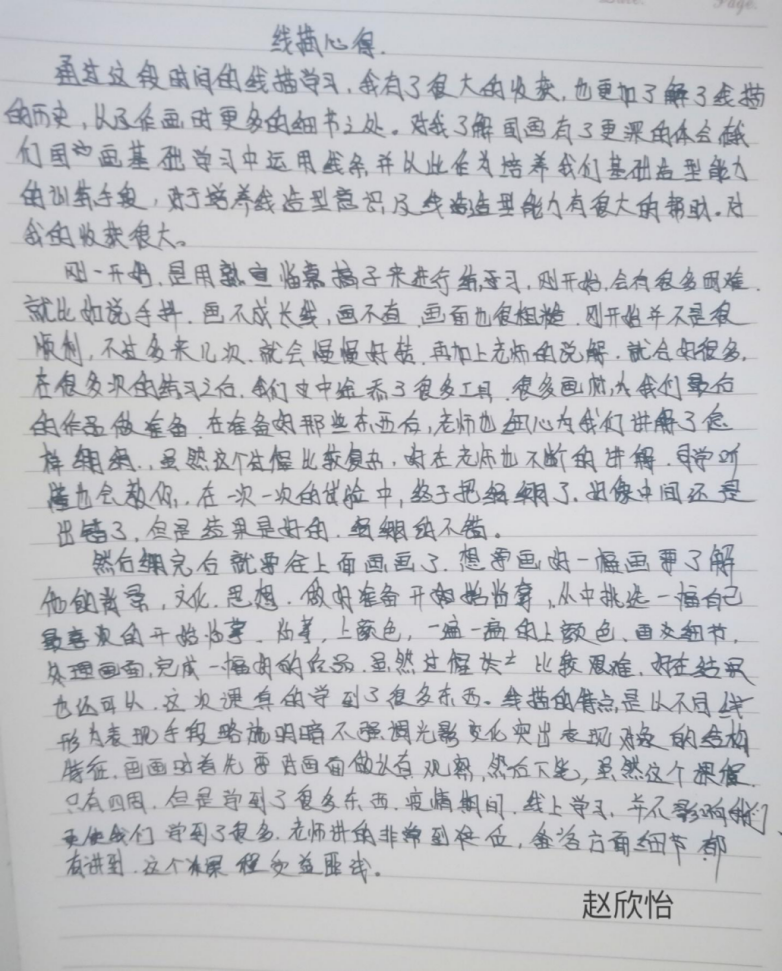 Page.
线描心得.
通过这段时间的线描学习,我有了很大的收获,也更加了解了线描
的历史,以及作画时更多的细节之处。对我了解国画有了更深的体会在我
们国画基础学习中运用线条并以此作为培养我们基础造型能力
的训练手段,对于培养线造型意识及线描造型能力有很大的帮助。对
我的收获很大。
刚一开始,是用熟宣临摹稿子来进行练习,刚开始,会有很多困难.
就比如说手抖.画不成长线,画不直.画面也很粗糙.刚开始并不是很
顺利,不过多来几次.就会慢慢好转.再加上老师的说解.就会好很多,
在很多次的练习之后.我们又中途添了很多工具.很多画材,为我们最后
的作品做准备.在准备好那些东西后,老师也细心为我们讲解了怎
样绷绢.,虽然这个过程比较复杂,好在老师也不断的讲解.同学听
懂也会教你,.在一次一次的试验中,终于把绢绷了.好像中间还是
出错了,但是结果是好的.绢绷的不错。
然后绷完后就要在上面画画了.想要画好一幅画要了解
他的背景,文化.思想.做好准备开始临摹,从中挑选一幅自己
最喜欢的开始临摹.临摹,上颜色,一遍一遍的上颜色.画及细节.
处理画面,完成一幅好的作品.虽然过程比较思难.好在结果
也还可以.这次课真的学到了很多东西。线描的特点,是以不同线
形为表现手段略施明暗不强调光影变化突出表现对象的结构
特征.画画时首先要对画面做认真观察,然后下笔,虽然这个课程
只有四周.但是学到了很多东西.疫情期间.线上学习.并不影响我们
更使我们学到了很多.老师讲的非常到位,各方面细节都
有讲到.这个课程受益匪浅。
赵欣怡